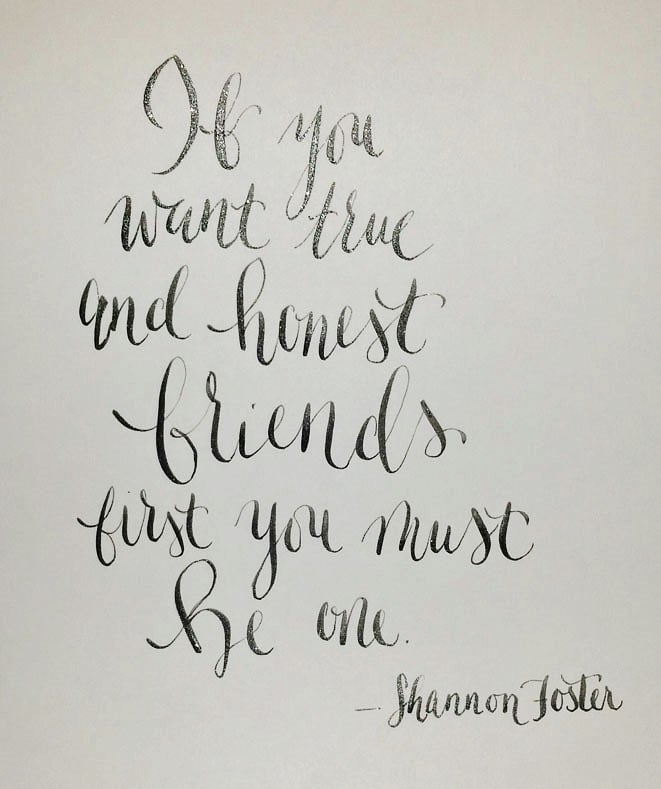 If you
want true
and honest
friends
first you must
be one.
- Shannon Foster